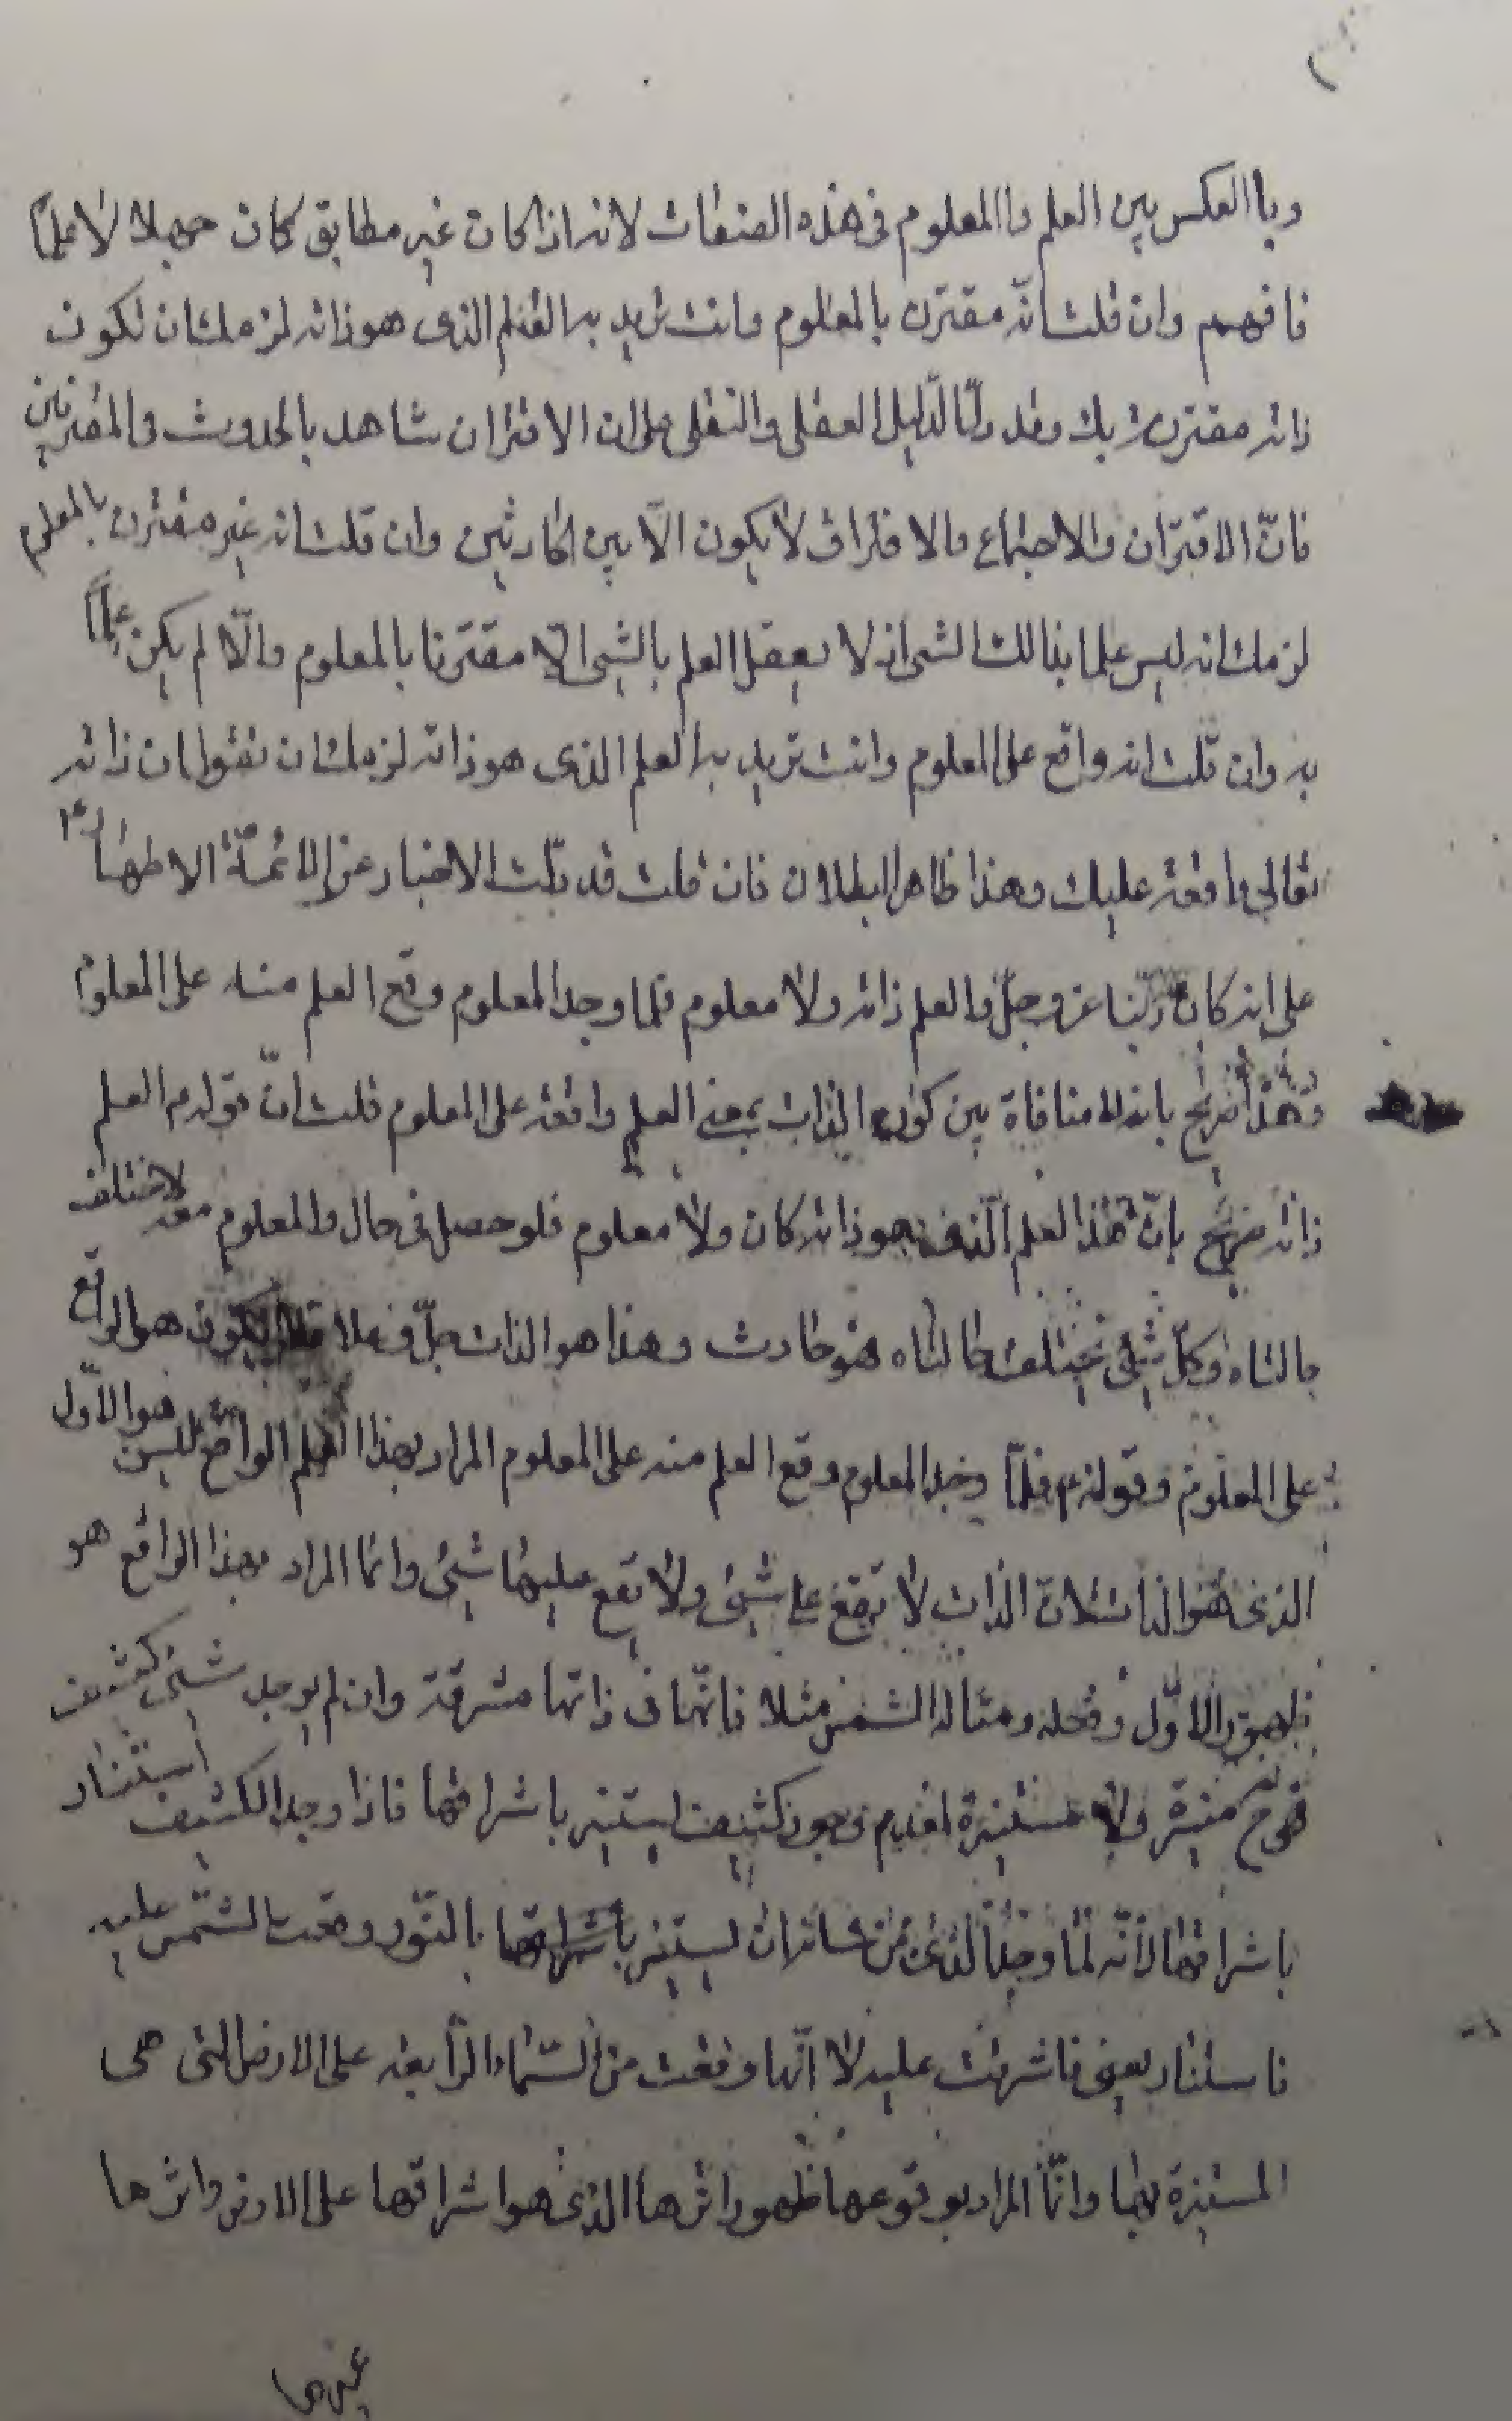 وبا العكس بين العلم والمعلوم فى هذه الصفات لانه اذا كان غير مطابق كان جهلا لا علمًا
فافهم وان قلت انّه مقترن بالمعلوم وانت تريد به العلم الذى هو ذاته لزمك ان تكون
ذاته مقترنة بك وقد دلّ الدّليل العقلى والنقلى على ان الاقتران شاهد بالحدوث فى المقترنين
فانّ الاقتران والاجتماع والافتراق لا يكون الّا بين الحادثين وان قلت انه غير مقترن بالمعلوم
لزمك انه ليس علما بذالك الشى اذ لا يعقل العلم بالشيى الّا مقترنا بالمعلوم والّا لم يكن علمًا
به وان قلت انه واقع على المعلوم وانت تريد به العلم الذى هو ذاته لزمك ان تقول ان ذاته
تعالى واقعة عليك وهذا ظاهر البطلان فان قلت قد دلّت الاخبار عن الائمّة الاطهار ع
على انه كان ربّنا عز وجلّ والعلم ذاته ولا معلوم فلما وجد المعلوم وقع العلم منه على المعلوم
وهذا صريح بانه لا منافاة بين كون الذات بمعنى العلم واقعة على المعلوم قلت انّ قوله ع العلم
ذاته صريح بانّ هذا العلم الّذى هو ذاته كان ولا معلوم فلو حصل فى حال والمعلوم معه لاختلف
حالتاه وكلّ شيئ تختلف حالتاه فهو حادث وهذا هو الذات جلّ وعلا فلا يكون هو الواقع
على المعلوم وقوله ع فلمّا وجد المعلوم وقع العلم منه على المعلوم المراد بهذا العلم الواقع ليس هو الاوّل
الذى هو الذات لانّ الذات لا تقع على شيئ ولا يقع عليها شيئ وانما المراد بهذا الواقع هو
ظهور الاوّل وفعله ومثاله الشمس مثلا فانّها فى ذاتها مشرقة وان لم يوجد شيئ كثيف
فهى ح منيرة ولا مستنيرة لعدم وجود كثيف ليستنير باشراقها فاذا وجد الكثيف استنار
باشراقها لانّه لمّا وجد الذى من شانه ان يستنير باشراقها بالنّور وقعت الشّمس عليه
فاستنار يعنى فاشرقت عليه لا انّها وقعت من السّماء الرّابعة على الارض التى هى
المستنيرة بها وانّما المراد بوقوعها ظهور اثرها الذى هو اشراقها على الارض واثرها
غيرها